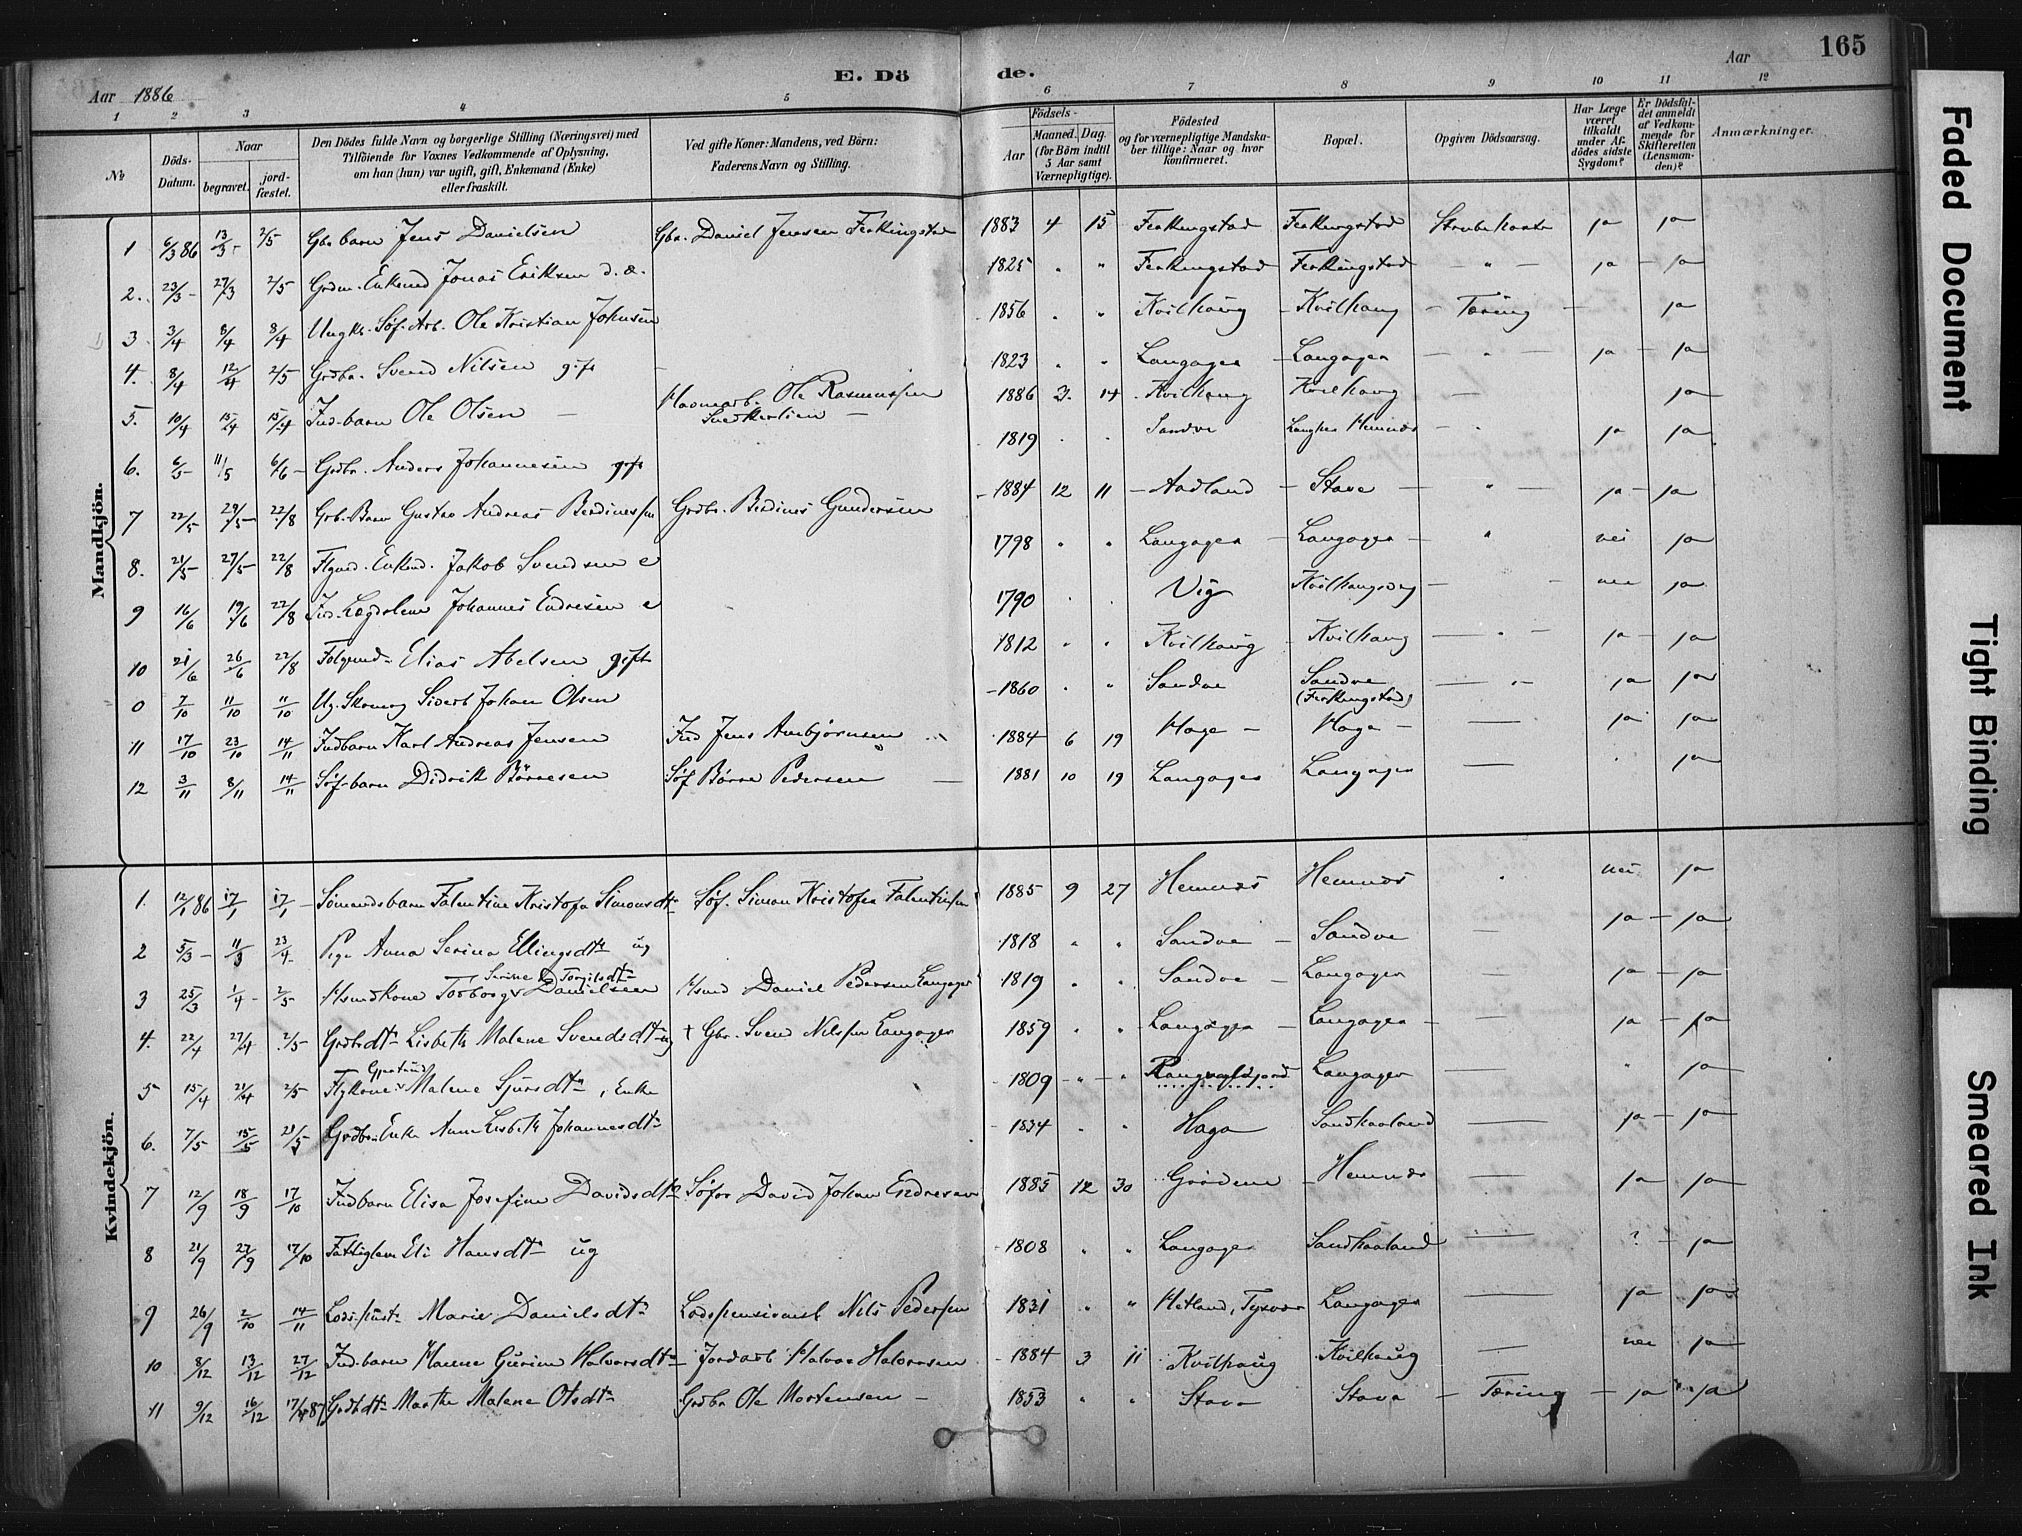 165
E. Dö de.
Aar 1886
Aar
1 2 3 4 5 6 7 8 9 10 11 12
No
Döds-Datum.
Naar
begravet.
jordfæstet.
Den Dödes fulde Navn og borgerlige Stilling (Næringsvei) med
Tilföiende for Voxnes Vedkommende af Oplysning,
om han (hun) var ugift, gift, Enkemand (Enke)
eller fraskilt.
Ved gifte Koner: Mandens, ved Börn:
Faderens Navn og Stilling.
Födsels-
Aar
Maaned. Dag.
(for Börn indtil
5 Aar samt
Værnepligtige).
Födested
og for værnepligtige Mandskaber tillige: Naar og hvor
konfirmeret.
Bopæl.
Opgiven Dödsaarsag.
Har Læge
været
tilkaldt
under Afdödes sidste
Sygdom?
Er Dödsfaldet anmeldt
af Vedkommende for
Skifteretten
(Lensmanden)?
Anmærkninger.
Mandkjön.
1 6/3 86 13/3 2/5 Gbr barn Jens Danielsen Gbr. Daniel Jensen Ferkingstad 1883 4 15 Ferkingstad Ferkingstad Strubehoste ja ja
2. 23/3 27/3 2/5 Grdm. Enkemd Jonas Eriksen d. æ. 1825 " " Ferkingstad Ferkingstad - " - ja - ja
3 3/4 8/4 8/4 Ungk. Søf. Arb. Ole Kristian Johnsen 1856 " " Kvilhaug - Kvilhaug - Tæring - ja
4. 8/4 12/4 2/5 Grdbr. Svend Nilsen gift 1823 " " Langager - Langager - " - ja - ja
5. 10/4 15/4 15/4 Ind. barn Ole Olsen - Havnearb. Ole Rasmussen 1886 3. 14 Kvilhaug Kvilhaug - ja
6. 6/5 11/5 6/6 Grdbr. Anders Johannesen gift 1819 " " Sandve Hemnæs ja ja
7 22/5 29/5 22/8 Grb. Barn Gustav Andreas Berdinessen Grdbr. Berdines Gundersen 1884 12 11 - Aadland - Stave - " - ja - ja
8. 21/5 27/5 22/8 Enkemd. Jakob Svendsen e 1798 " " Langager - Langager - " nei ja
9 16/6 19/6 22/8 Ind. Lægdslem Johannes Endresen e 1790 . . Vig Kvilhaugsvig - nei ja
10 21/6 26/6 22/8 Elias Abelsen gift 1812 " " Kvilhaug - Kvilhaug - " - ja - ja
0 7/10 11/10 11/10 Ug. Skomag Sivert Johan Olsen 1860 " " Sandve Sandve (Ferkingstad) - " - ja ja
11 17/10 23/10 14/11 Indbarn Karl Andreas Jensen Ind Jens Ambjørnsen 1884 6 19 Hage - Hage - ja ja
12 3/11 8/11 14/11 Søf-barn Didrik Børresen Søf Børre Pedersen - 1881 10 19 Langager Langager - ja
Kvindekjön.
1. 12/1 86 17/1 17/1 Sømandsbarn Falentine Kristofa Simonsdt Søf. Simon Kristofer Falentinsen 1885 9 27 Hemnæs Hemnæs " nei ja
2 5/3 11/3 23/4 Pige Anna Serina Ellingsdtr ug 1818 " " Sandve - Sandve - ja - ja
3 25/3 1/4 2/5 Hsmdkone Torborg Serine Torgilsdtr Danielsen Hsmd Daniel Pedersen Langager 1819 " " Sandve - Langager - ja - ja
4. 22/4 27/4 2/5 Grdbrdtr Lisbeth Malene Svendsdtr ug + Gbr. Svend Nilsen Langager 1859 " " Langager - Langager - ja - ja
5 15/4 21/4 2/5 Gjertrud Malene Sjursdtr, Enke 1809 " " Langager - " ja
6. 7/5 15/5 21/5 Grdbr. Enke Anne Lisbeth Johannesdtr 1834 " " Haga Sandhaaland - ja - ja
7 12/9 18/9 17/10 Indbarn Elisa Josefine Davidsdtr Søfar David Johan Endresen 1885 12 30 Grindene - Hemnæs - ja - ja
8 21/9 27/9 17/10 Fattiglem Eli Hansdtr ug 1808 " " Langager Sandhaaland - ? - ja
9 26/9 2/10 14/11 Marie Danielsdtr Lodspensionist Nils Pedersen 1831 " " Hetland, Tysvær Langager - ja - ja
10 8/12 13/12 27/12 Ind-barn Marene Gurine Halvorsdtr Jordarb Halvor Halvorsen 1884 3 11 Kvilhaug Kvilhaug - nei ja
11 9/12 16/12 17/4 87 Grdbdtr Marthe Malene Olsdtr Grdbr Ole Mortensen - 1853 " " Stava Stava - Tæring - ja - ja
Faded Document
Tight Binding
Smeared Ink